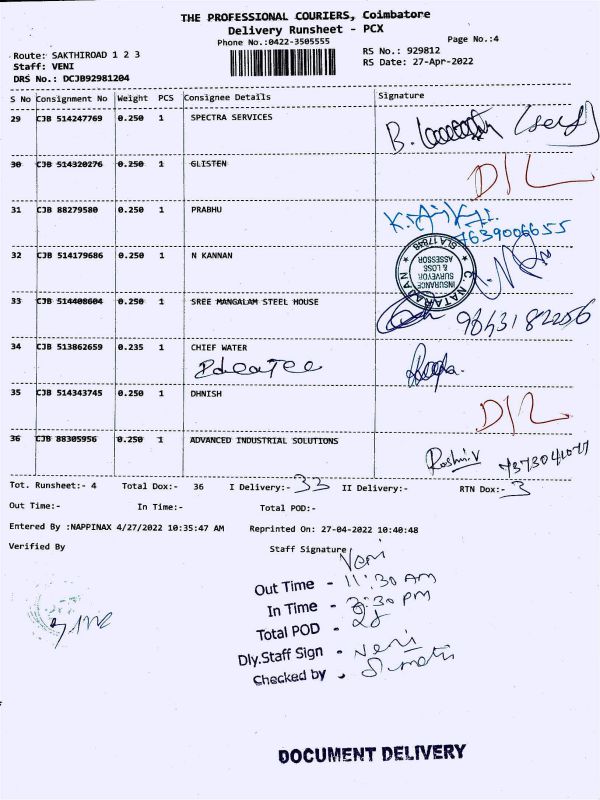 THE PROFESSIONAL COURIERS, Coimbatore
Delivery Runsheet - PCX
Phone No.:0422-3505555
Page No.:4
Route: SAKTHIROAD 1 2 3
RS No.: 929812
Staff: VENI
RS Date: 27-Apr-2022
DRS No.: DCJB92981204
S No Consignment No Weight PCS Consignee Details Signature
29 CJB 514247769 0.250 1 SPECTRA SERVICES
B.
30 CJB 514320276 0.250 1 GLISTEN
D/L
31 CJB 88279580 0.250 1 PRABHU
7639006655
32 CJB 514179686 0.250 1 N KANNAN
C. NATARAJAN
INSURANCE
SURVEYOR
& LOSS
ASSESSOR
SLA 17848
33 CJB 514408604 0.250 1 SREE MANGALAM STEEL HOUSE
9843182256
34 CJB 513862659 0.235 1 CHIEF WATER
35 CJB 514343745 0.250 1 DHNISH
D/L
36 CJB 88305956 0.250 1 ADVANCED INDUSTRIAL SOLUTIONS
Roshni.V
Tot. Runsheet:- 4 Total Dox:- 36 I Delivery:- 33 II Delivery:- RTN Dox:- 3
Out Time:- In Time:- Total POD:-
Entered By :NAPPINAX 4/27/2022 10:35:47 AM Reprinted On: 27-04-2022 10:40:48
Verified By Staff Signature
Veni
Out Time - 11:30 AM
In Time - 3:30 PM
Total POD - 28
Dly.Staff Sign - Veni
Checked by -
DOCUMENT DELIVERY